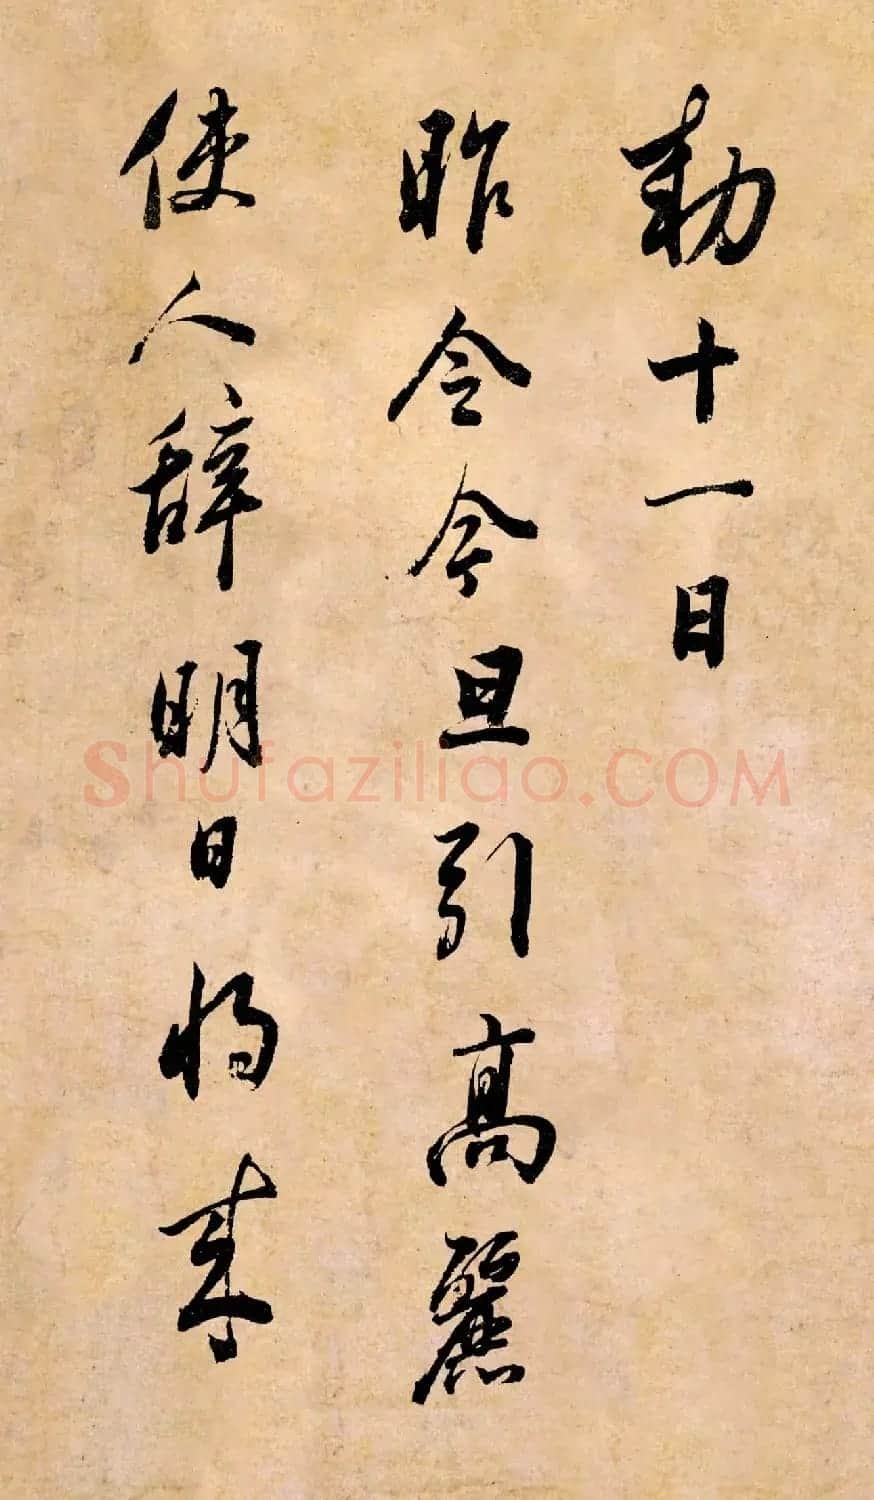 敕十一日
昨令今旦引高麗
使人辞明日将来
Shufaziliao.COM